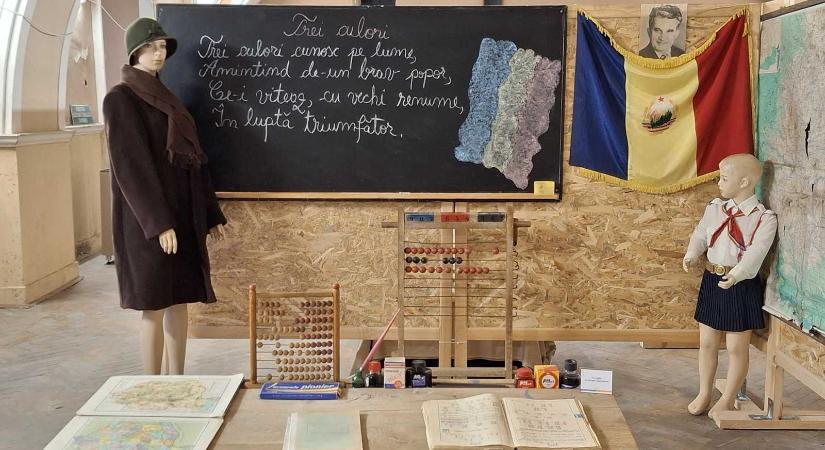 Trei culori
Trei culori cunosc pe lume,
Amintind de-un brav popor,
Ce-i viteaz, cu vechi renume,
În luptă triumfător.
pionier